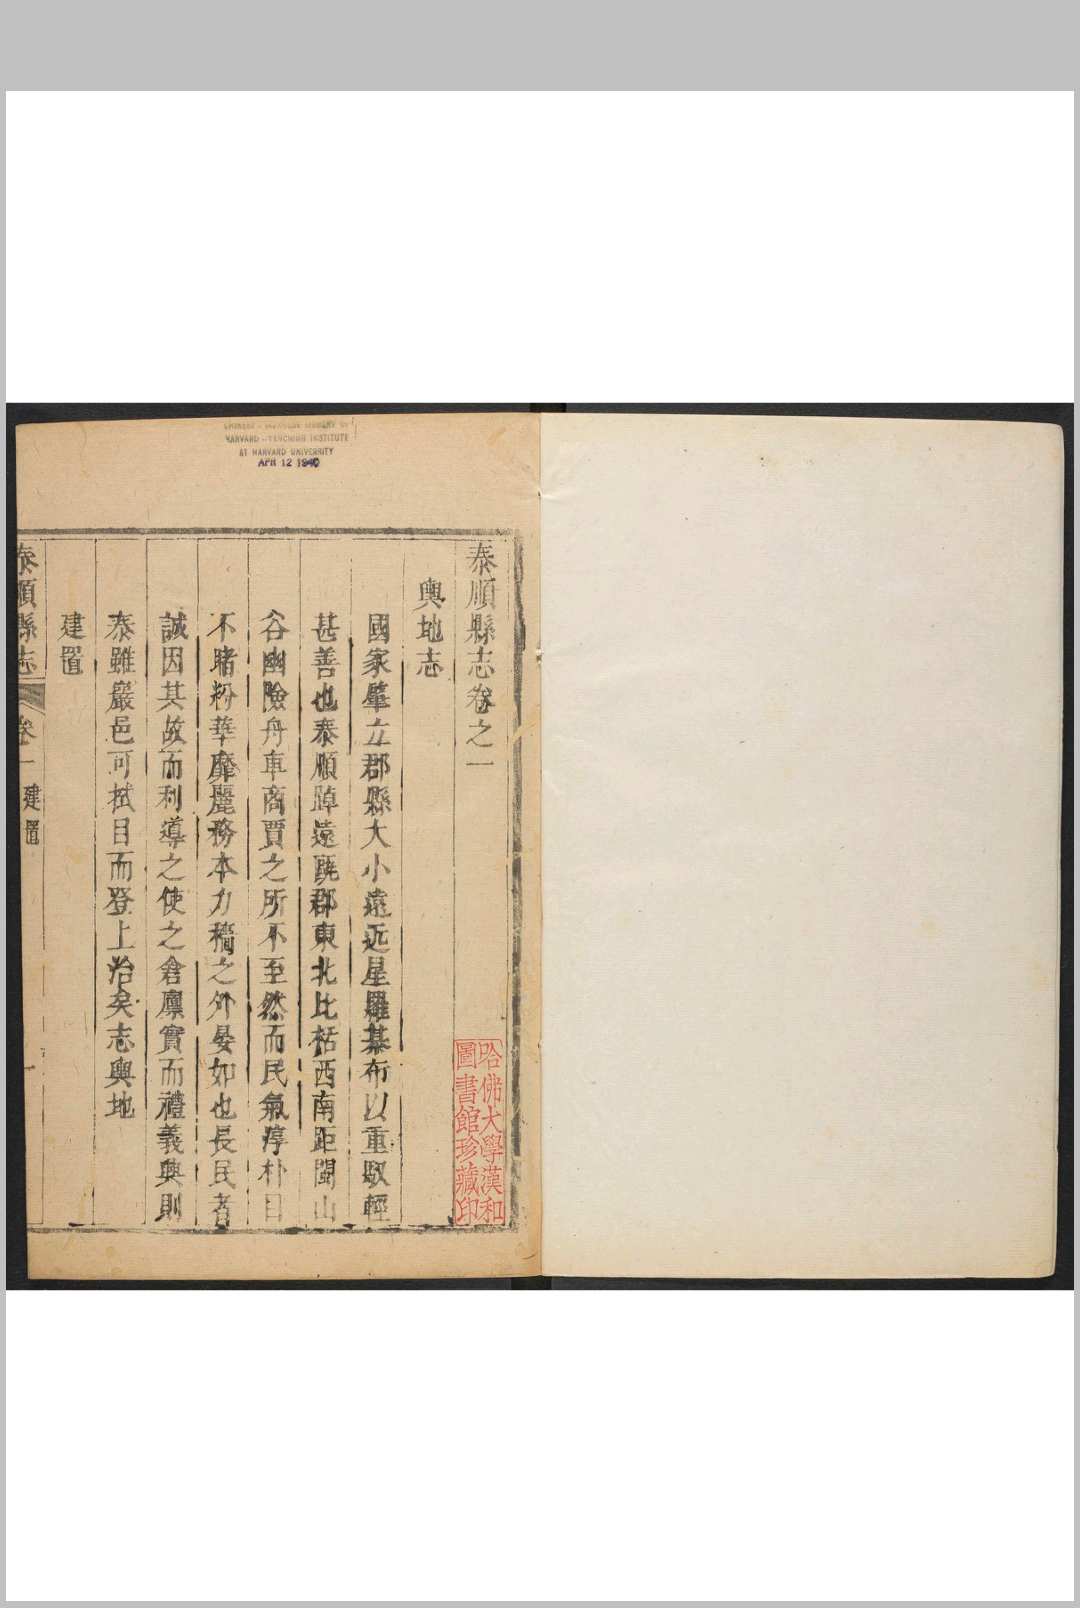 泰順縣志卷之一
輿地志
國家肇立郡縣大小遠近星羅棊布以重馭輕
甚善也泰順踔遠甌郡東北比栝西南距閩山
谷幽險舟車商賈之所不至然而民氣淳朴目
不睹粉華靡麗務本力穡之外晏如也長民者
誠因其故而利導之使之倉廪實而禮義興則
泰雖巖邑可拭目而登上治矣志輿地
建置
泰順縣志
卷一
建置
一
哈佛大學漢和
圖書館珍藏印
CHINESE - JAPANESE LIBRARY OF
HARVARD - YENCHING INSTITUTE
AT HARVARD UNIVERSITY
APR 12 1940